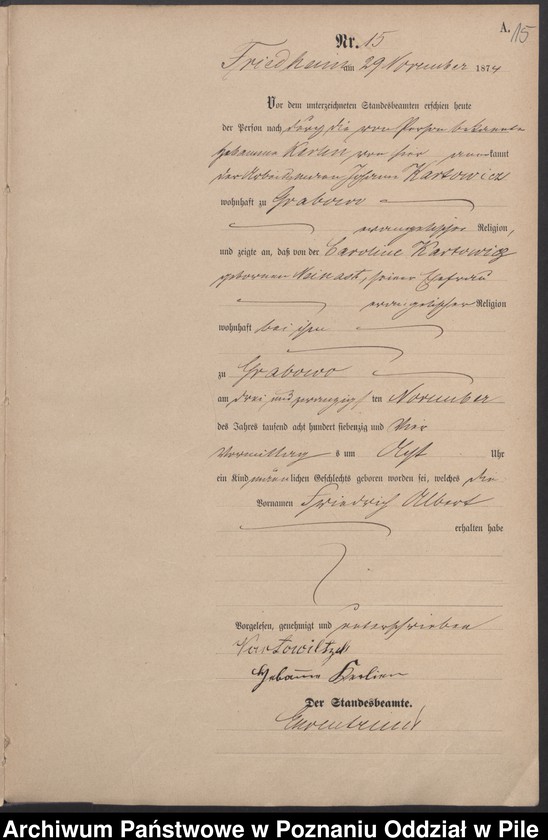 A. 15
Nr. 15
Friedheim am 29 November 1874
Vor dem unterzeichneten Standesbeamten erschien heute
der Person nach durch die von Person bekannte
Hebamme Kerlin von hier, anerkannt
der Johann Kartowicz
wohnhaft zu Grabowo
evangelischer Religion,
und zeigte an, daß von der Caroline Kartowicz
geborenen Neinast, seiner Ehefrau
evangelischer Religion
wohnhaft bei ihm
zu Grabowo
am drei und zwanzig ten November
des Jahres tausend acht hundert siebenzig und Vier
Vormittag s um Acht Uhr
ein Kind männlichen Geschlechts geboren worden sei, welches die
Vornamen Friedrich Albert
erhalten habe
Vorgelesen, genehmigt und unterschrieben
Kartowitzch
Hebamme Kerlien
Der Standesbeamte.
Archiwum Państwowe w Poznaniu Oddział w Pile